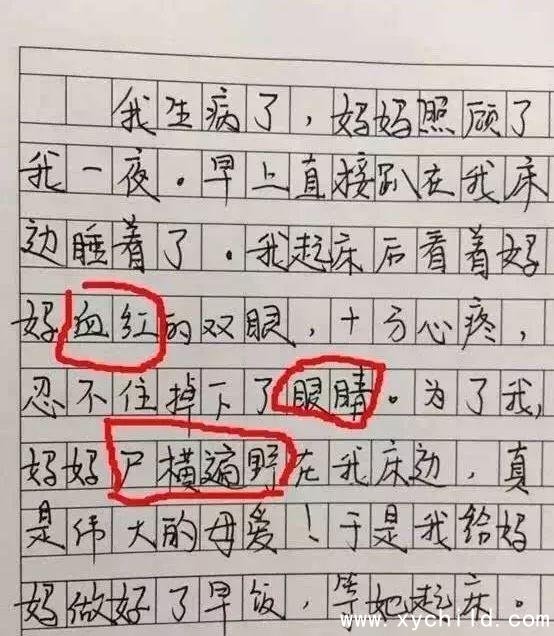 我生病了，妈妈照顾了
我一夜。早上直接趴在我床
边睡着了。我起床后看着妈
妈血红的双眼，十分心疼，
忍不住掉下了眼睛。为了我，
妈妈尸横遍野在我床边，真
是伟大的母爱！于是我给妈
妈做好了早饭，等她起床。
www.xychild.com